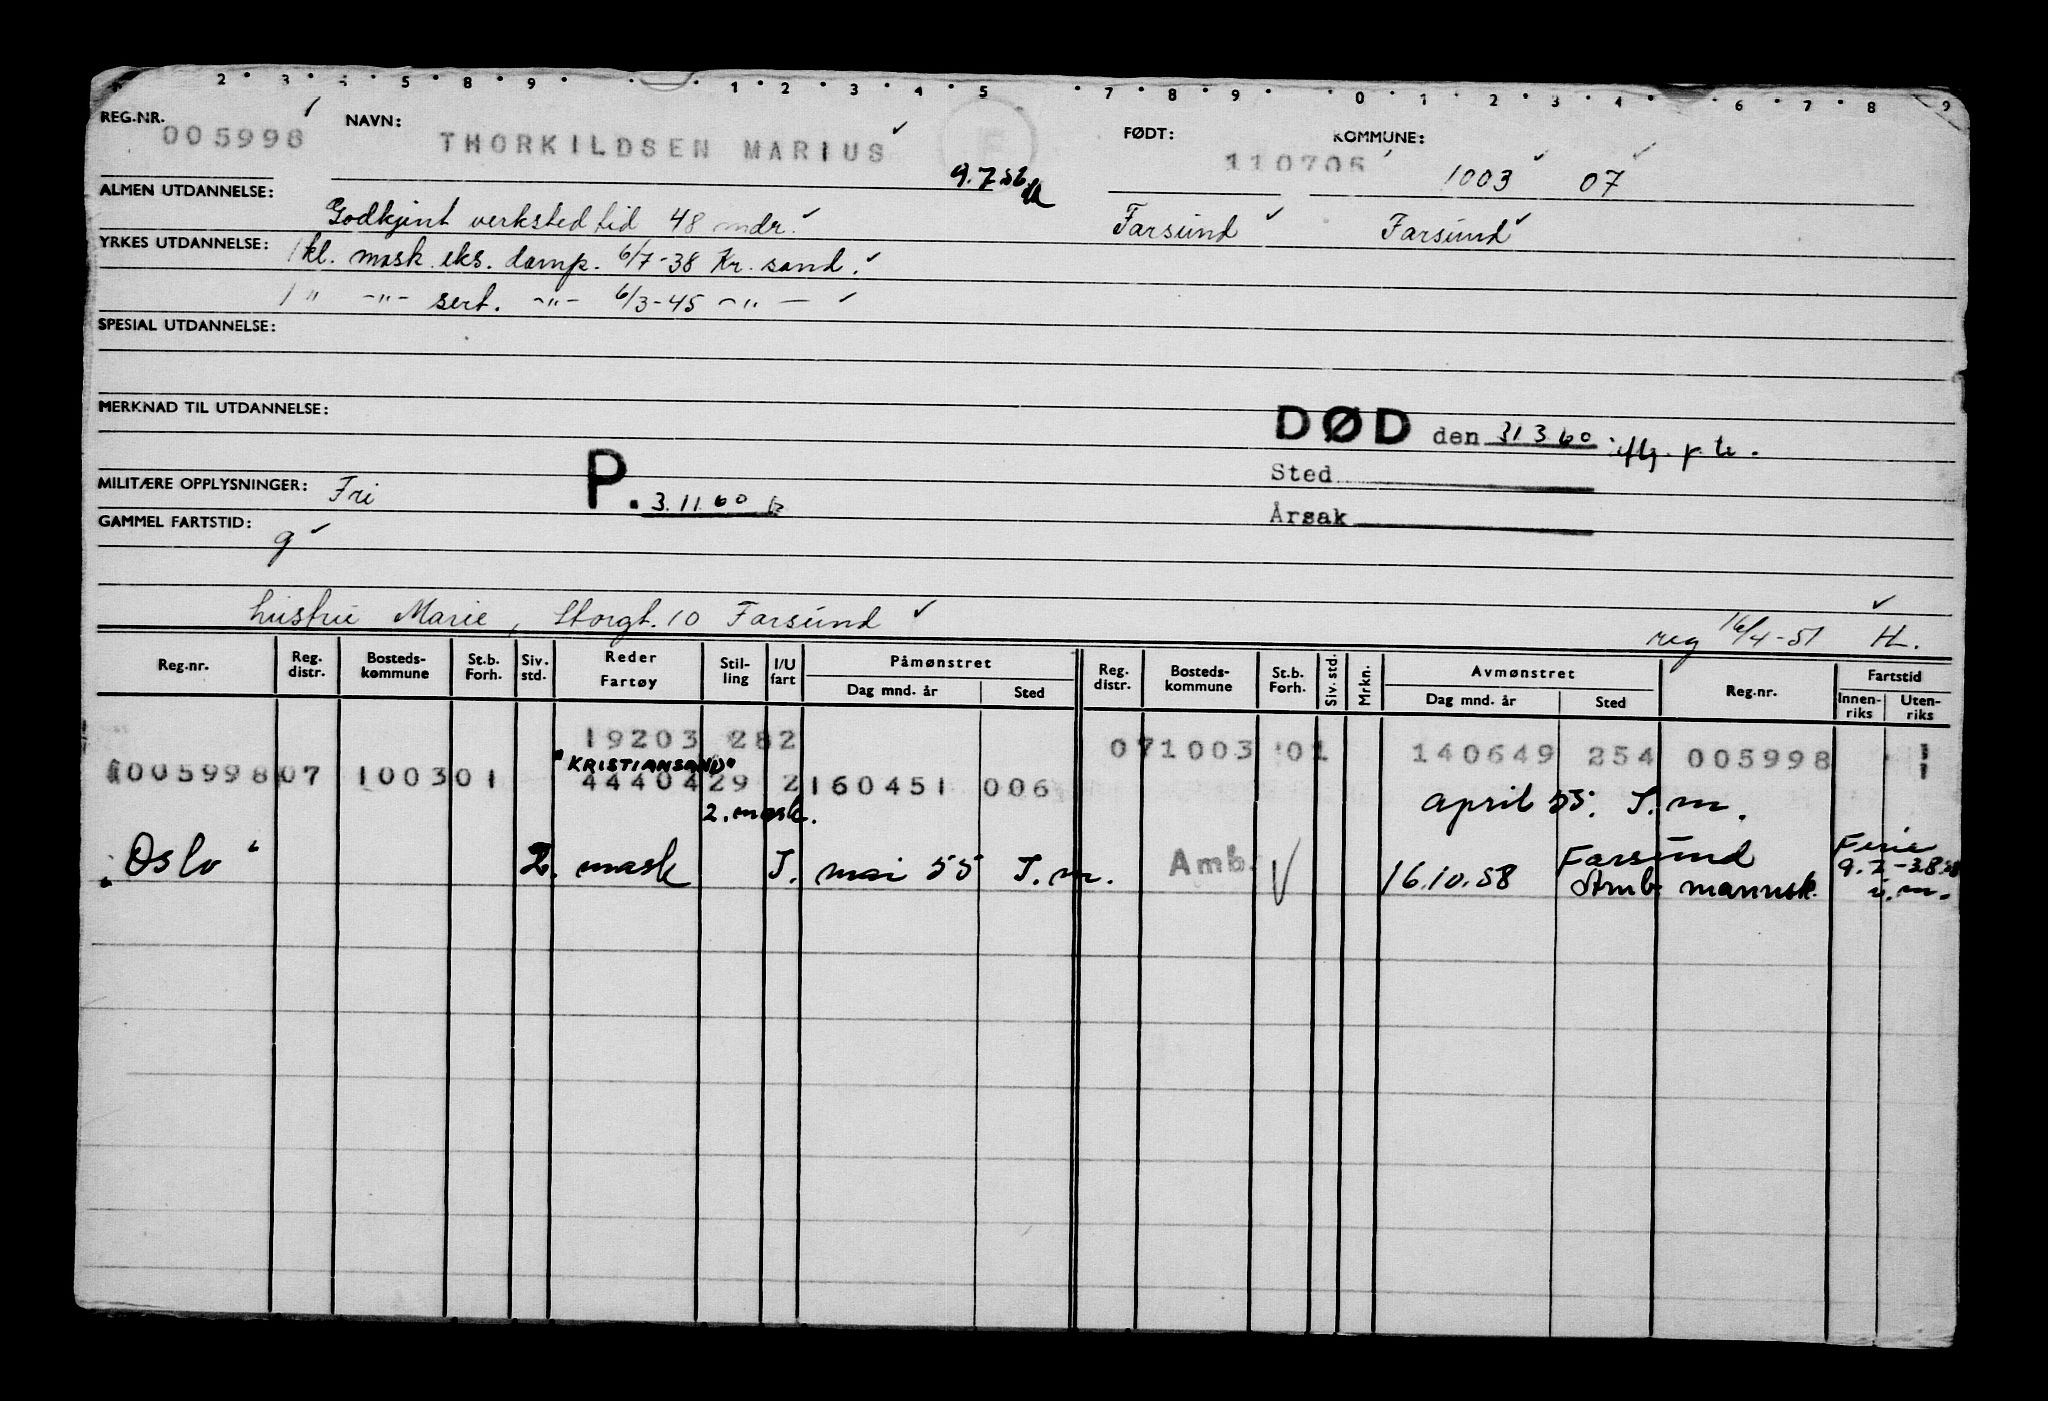 2 3 5 8 9 1 2 3 4 5 7 8 9 0 1 2 3 4 6 7 8 9
REG.NR. NAVN: FØDT: KOMMUNE:
005998 THORKILDSEN MARIUS 110705 1003 07
9.7.56
ALMEN UTDANNELSE:
Godkjent verksted tid 48 mdr. Farsund Farsund
YRKES UTDANNELSE: 1 kl. mask. eks. damp. 6/7-38 Kr. sand.
1 " -"- sert. -"- 6/3-45 -"-
SPESIAL UTDANNELSE:
MERKNAD TIL UTDANNELSE:
DØD den 31 3 60 iflg. p.k.
Sted
MILITÆRE OPPLYSNINGER: Fri P. 3.11.60
Årsak
GAMMEL FARTSTID: g
hustru Marie, Storgt. 10 Farsund
reg 16/4-51 H.
Reg.nr. Reg. distr. Bosteds-kommune St.b. Forh. Siv. std. Reder Fartøy Stil-ling I/U fart Påmønstret Dag mnd. år Sted Reg. distr. Bosteds-kommune St.b. Forh. Siv. std. Mrkn. Avmønstret Dag mnd. år Sted Reg.nr. Fartstid Innen-riks Uten-riks
19203 282 071003 01 140649 254 005998 1
"KRISTIANSAND"
005998 07 1003 01 44404 29 2 160451 006 1
2. mask. april 55. T.m.
"Oslo" 2. mask I. mai 55 T.m. Amb. 16.10.58 Farsund Ferie
Amb. mannsk. 9.7-3.8.58
i.m.